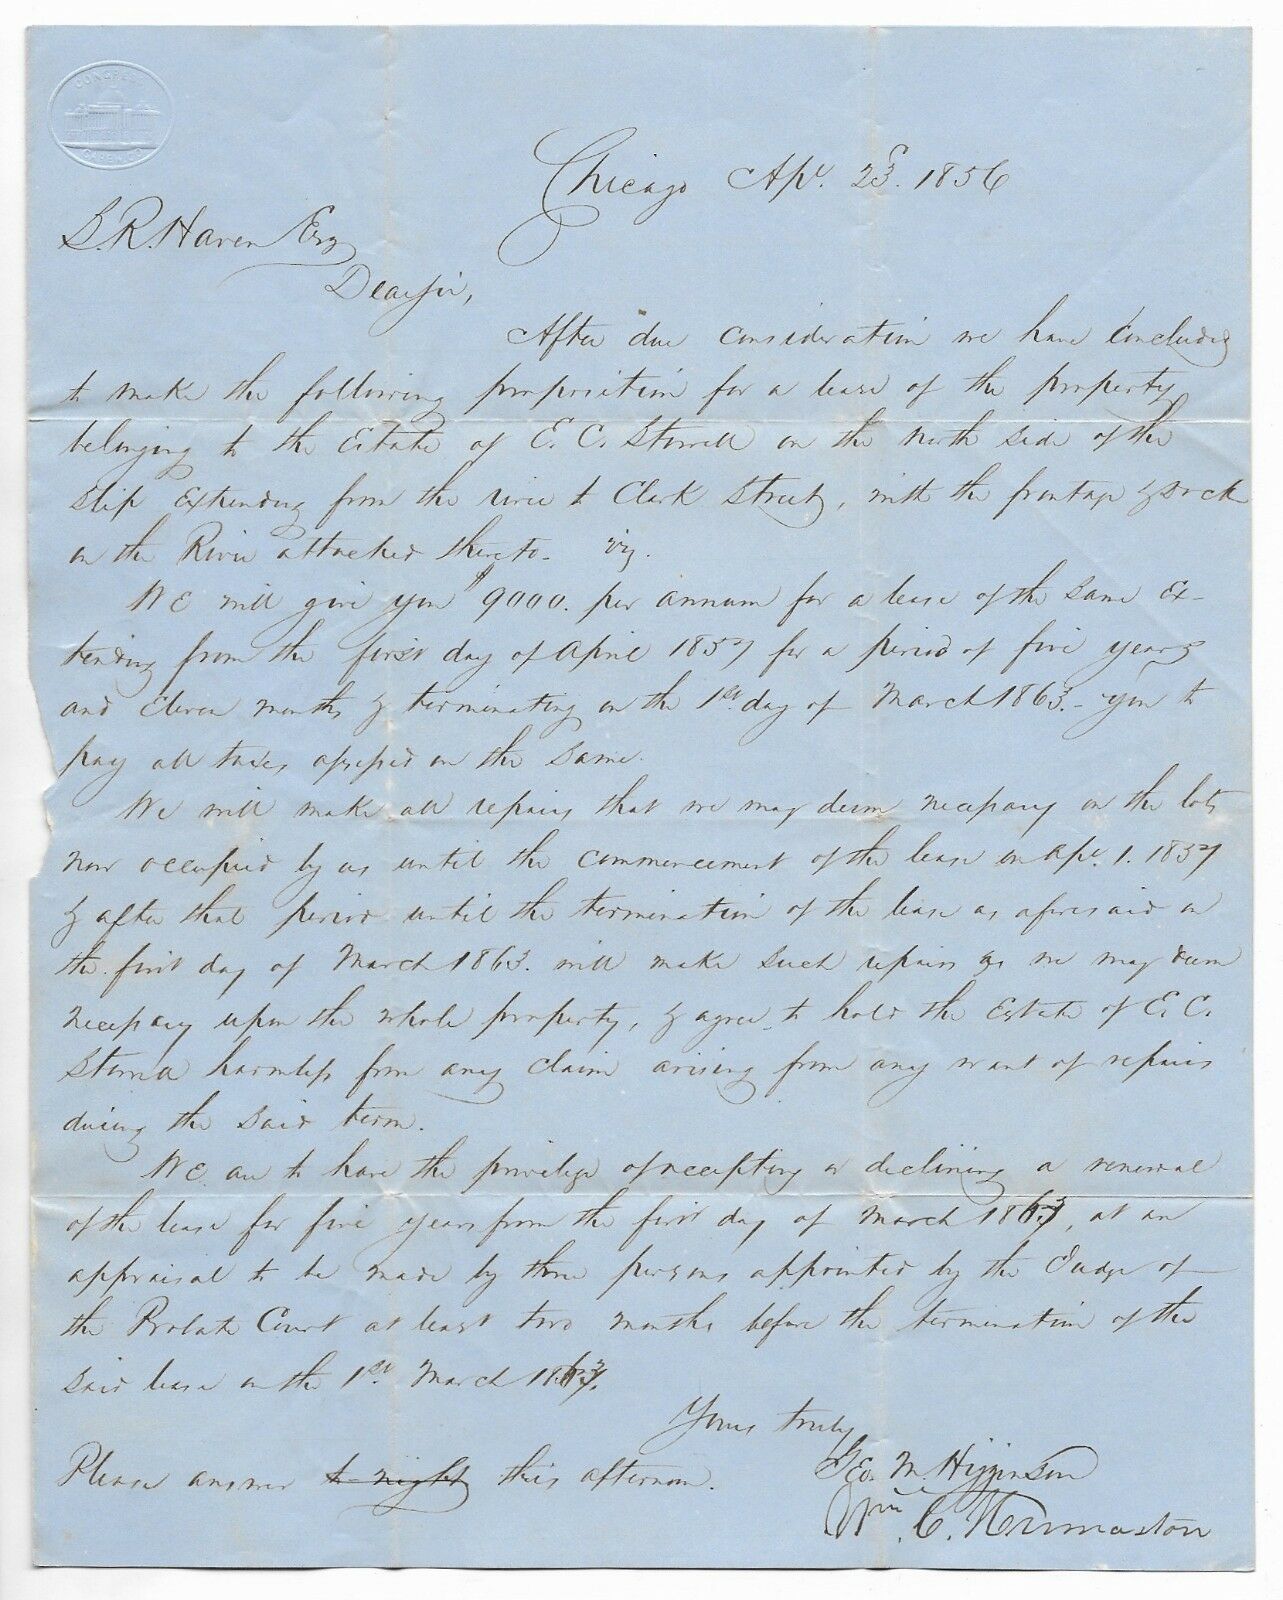 CONGRESS
CAREW CO
Chicago Apl. 23d. 1856
S. R. Haven Esq
Dear Sir,
After due consideration we have concluded
to make the following proposition for a lease of the property
belonging to the Estate of E. C. Stowell on the North side of the
slip extending from the river to Clark Street, with the frontage & dock
on the River attached thereto - viz.
We will give you $9000. per annum for a lease of the same Ex-
tending from the first day of April 1857 for a period of five years
and Eleven months & terminating on the 1st day of March 1863. - you to
pay all taxes assessed on the same.
We will make all repairs that we may deem necessary on the lots
now occupied by us until the commencement of the lease on Apl. 1. 1857
& after that period until the termination of the lease as aforesaid on
the first day of March 1863. will make such repairs as we may deem
necessary upon the whole property, & agree to hold the Estate of E. C.
Stowell harmless from any claim arising from any want of repairs
during the said term.
We are to have the privilege of accepting or declining a renewal
of the lease for five years from the first day of March 1863, at an
appraisal to be made by three persons appointed by the Judge of
the Probate Court at least two months before the termination of the
said lease on the 1st. March 1863.
Yours truly
Please answer to night this afternoon.
Geo. M. Higginson
Wm. C.